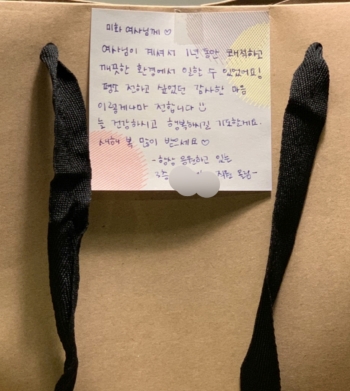 미화 여사님께 ♡
여사님이 계셔서 1년 동안 쾌적하고
깨끗한 환경에서 일할 수 있었어요!
평소 전하고 싶었던 감사한 마음
이렇게나마 전합니다 :)
늘 건강하시고 행복하시길 기도할게요.
새해 복 많이 받으세요 ♡
-항상 응원하고 있는
직원 일동-